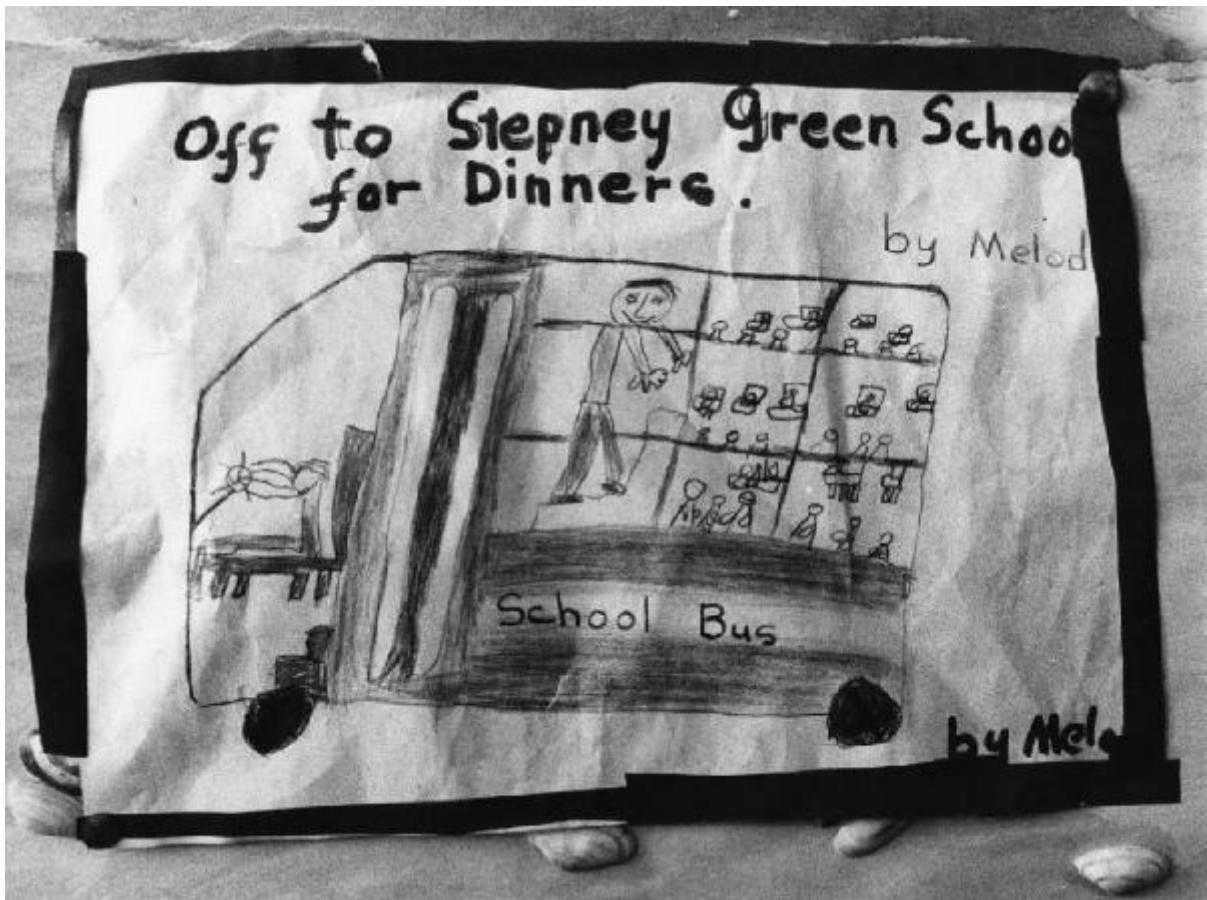 Off to Stepney Green Schoo
for Dinners.
by Melod
School Bus
by Mel